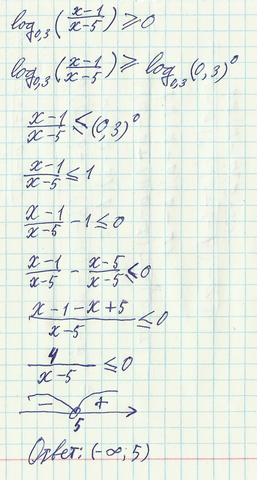 log₀,₃((x-1)/(x-5)) ≥ 0
log₀,₃((x-1)/(x-5)) ≥ log₀,₃(0,3)⁰
(x-1)/(x-5) ≤ (0,3)⁰
(x-1)/(x-5) ≤ 1
(x-1)/(x-5) - 1 ≤ 0
(x-1)/(x-5) - (x-5)/(x-5) ≤ 0
(x-1-x+5)/(x-5) ≤ 0
4/(x-5) ≤ 0
- +
5
Ответ: (-∞; 5)